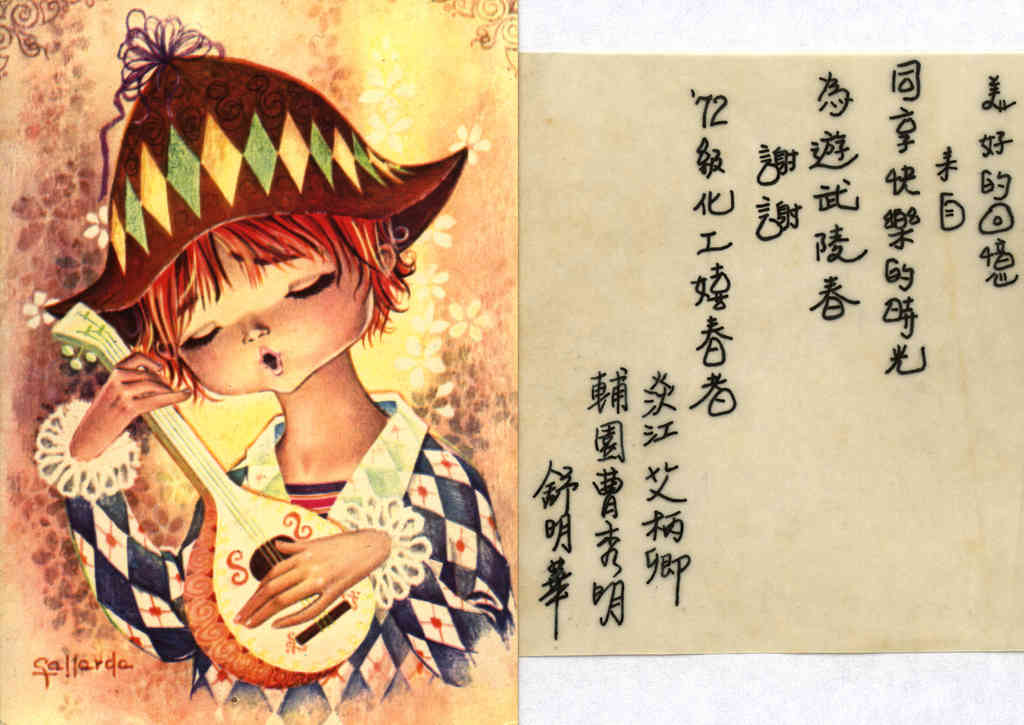 美好的回憶
来自
同享快樂的時光
為遊武陵春
謝謝
'72級化工嬉春者
淡江艾柄卿
輔園曹秀明
舒明華
Gallarda